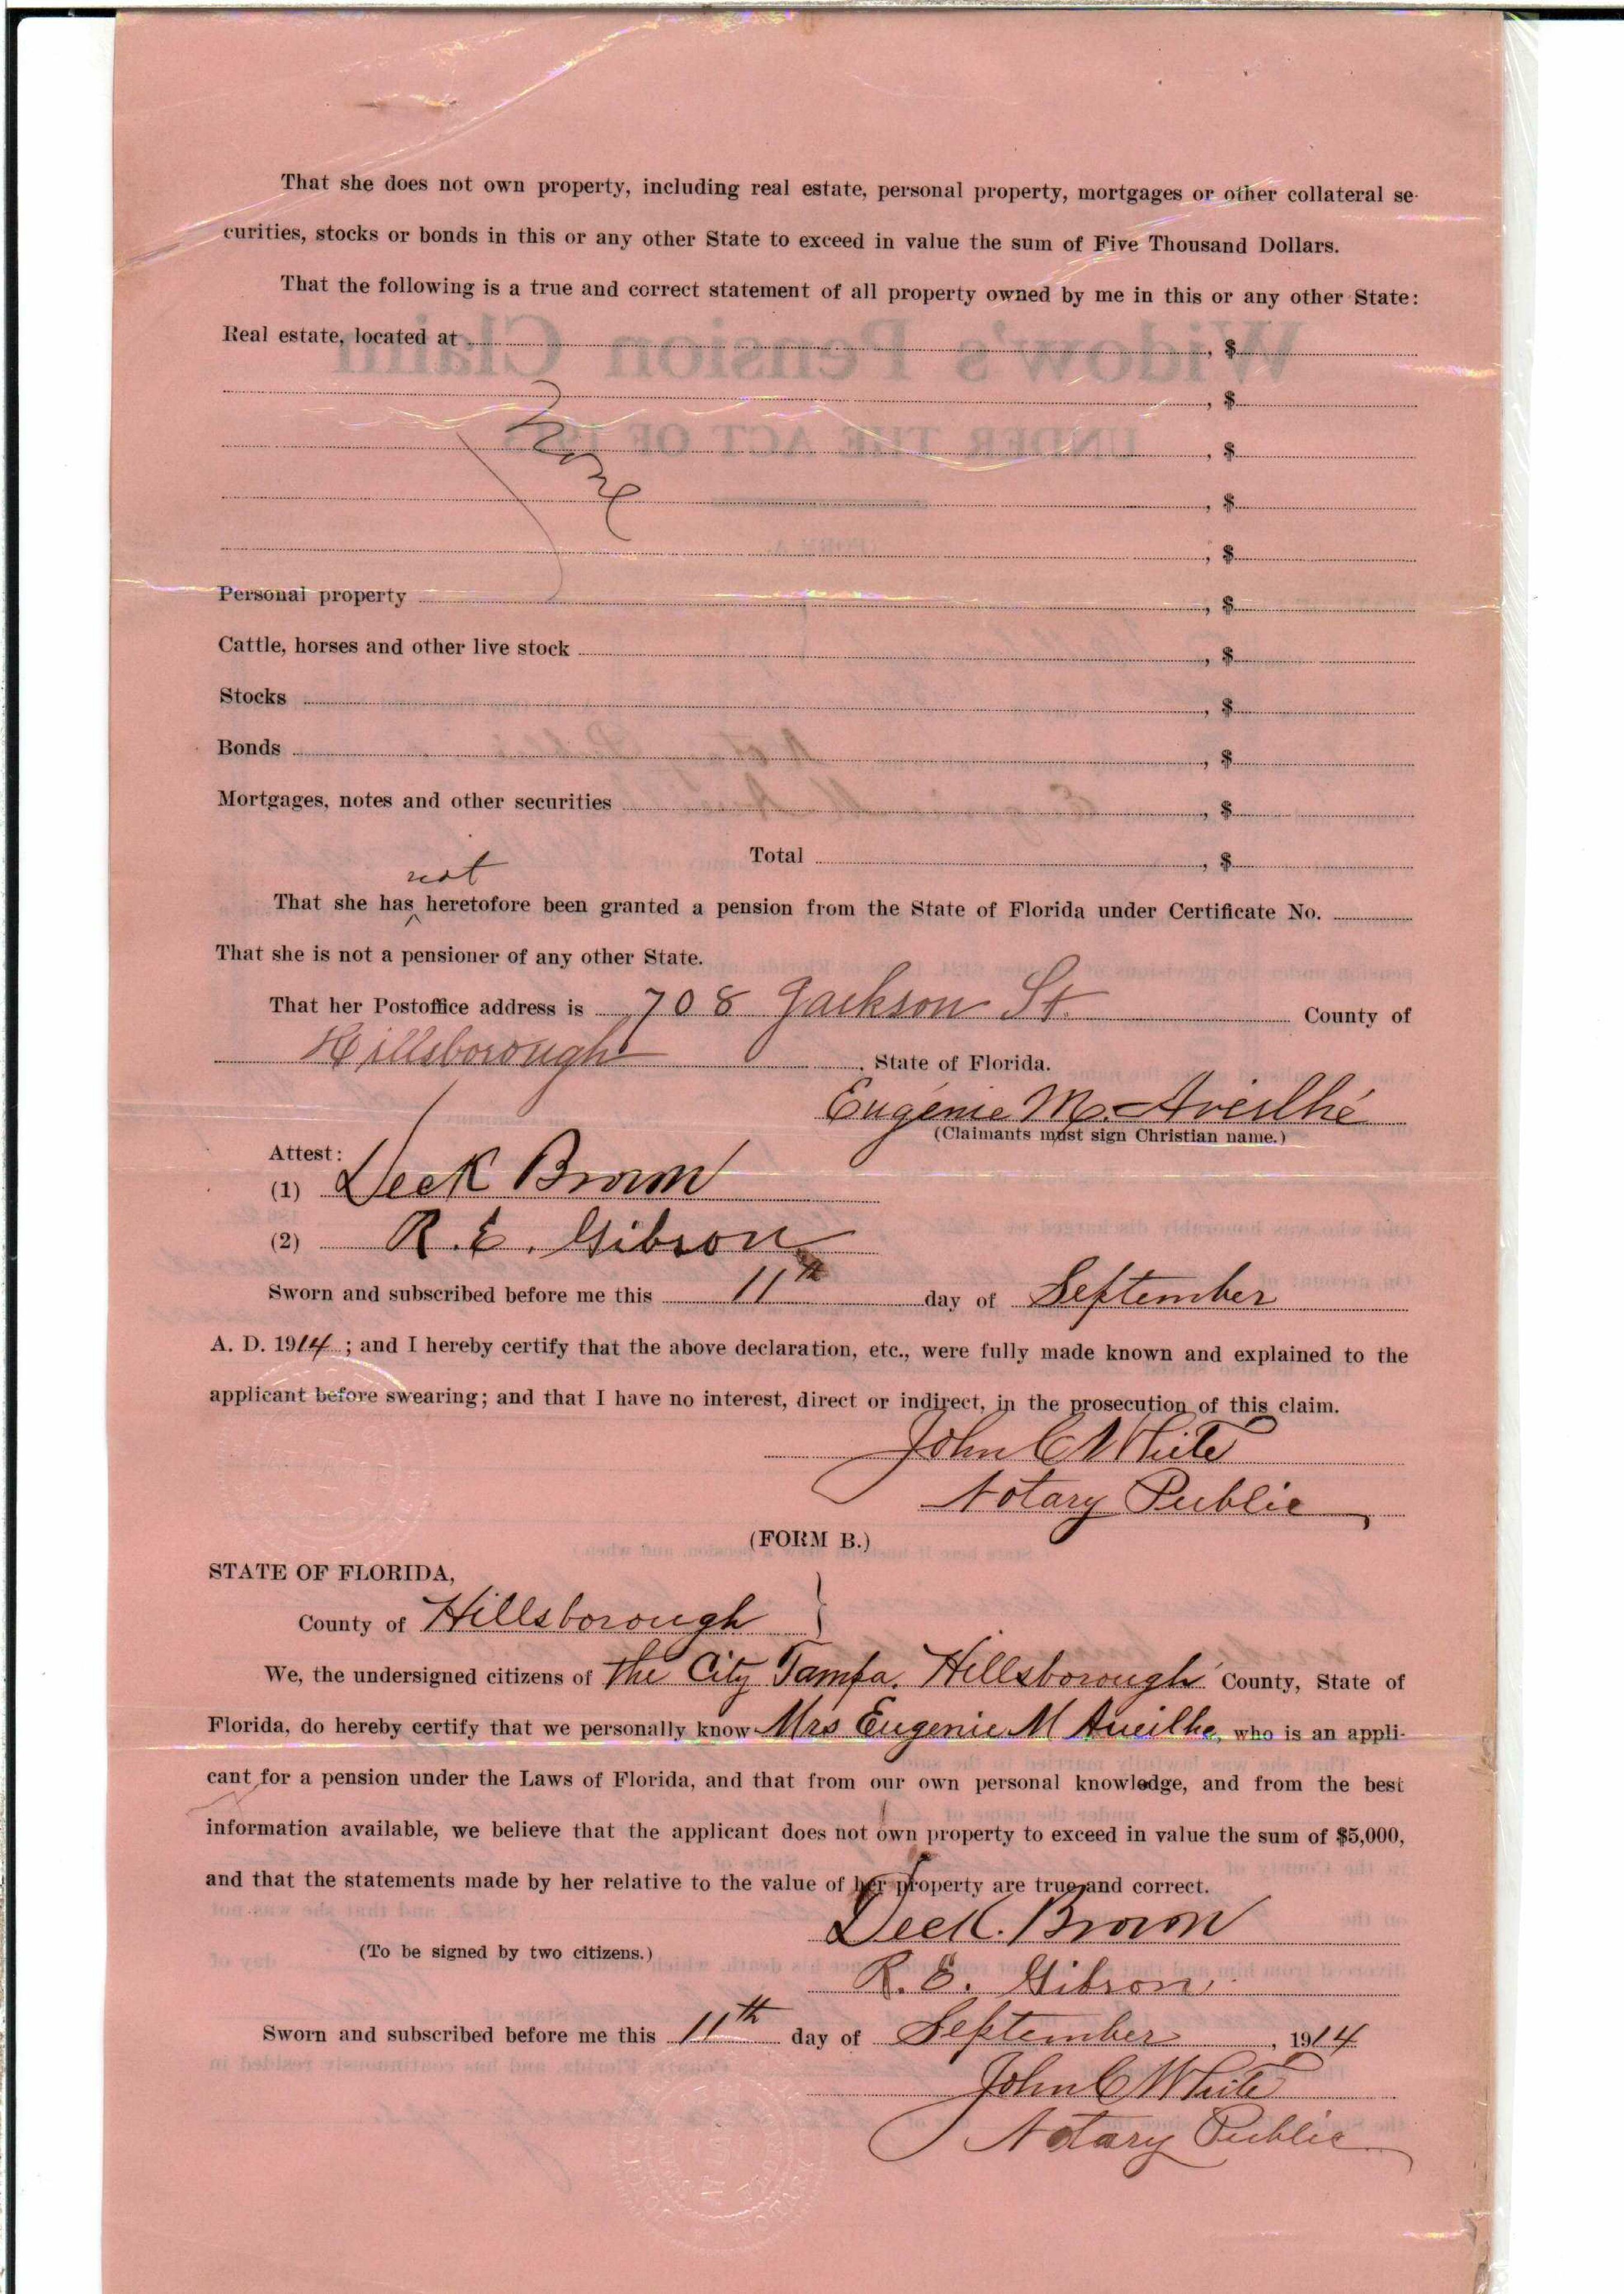 That she does not own property, including real estate, personal property, mortgages or other collateral se-
curities, stocks or bonds in this or any other State to exceed in value the sum of Five Thousand Dollars.
That the following is a true and correct statement of all property owned by me in this or any other State:
Real estate, located at , $
, $
, $
, $
, $
Personal property , $
Cattle, horses and other live stock , $
Stocks , $
Bonds , $
Mortgages, notes and other securities , $
Total , $
not
That she has ^ heretofore been granted a pension from the State of Florida under Certificate No.
That she is not a pensioner of any other State.
That her Postoffice address is 708 Jackson St. County of
Hillsborough , State of Florida.
Eugénie M. Aveilhé
(Claimants must sign Christian name.)
Attest:
(1) Brown
(2) R. E. Gibson
Sworn and subscribed before me this 11th day of September
A. D. 1914 ; and I hereby certify that the above declaration, etc., were fully made known and explained to the
applicant before swearing; and that I have no interest, direct or indirect, in the prosecution of this claim.
John C White
Notary Public
(FORM B.)
STATE OF FLORIDA,
County of Hillsborough }
We, the undersigned citizens of The City Tampa, Hillsborough County, State of
Florida, do hereby certify that we personally know Mrs Eugenie M Aveilhe, who is an appli-
cant for a pension under the Laws of Florida, and that from our own personal knowledge, and from the best
information available, we believe that the applicant does not own property to exceed in value the sum of $5,000,
and that the statements made by her relative to the value of her property are true and correct.
Brown
(To be signed by two citizens.)
R. E. Gibson
Sworn and subscribed before me this 11th day of September , 1914
John C White
Notary Public